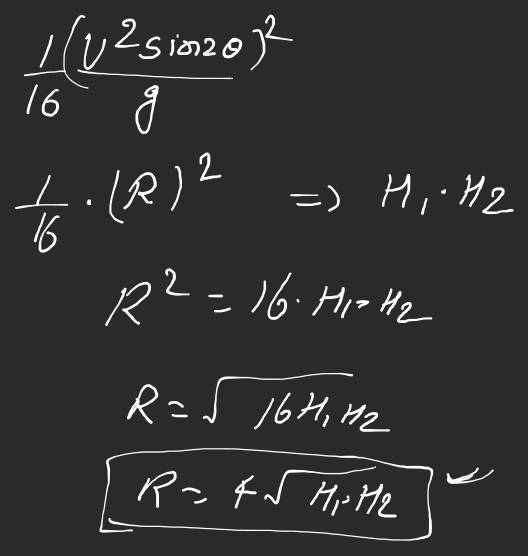 1/16 (v²sin2θ/g)²
1/16 · (R)² => H₁·H2
R² = 16·H₁·H2
R = √16H₁H2
R = 4√H₁·H2